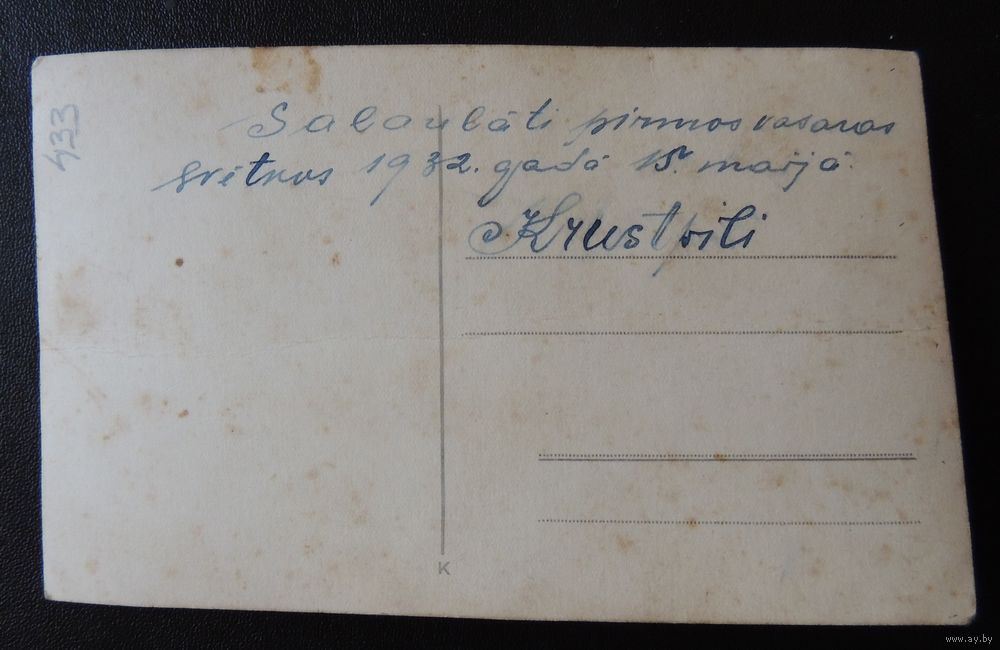 433
Salaulāti pirmos vasaras
svētkos 1932. gadā 15. maijā.
Krustpilī
K
www.ay.by